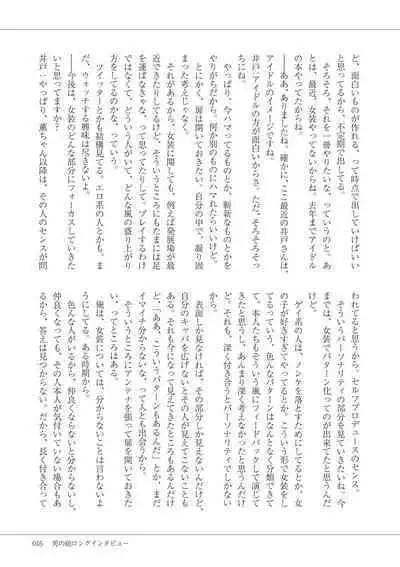 ど、面白いものが作れる、って時点で出していけばいい
と思ってるから、不定期で出してる。
そろそろ、それを一番やりたいな。っていうのと、あ
とは、最近、女装やってないからね。去年までアイドル
の本やってたからね。
――ああ、ありましたね。確かに、ここ最近の井戸さんは、
アイドルのイメージですね。
井戸―アイドルの方が面白いからさ、ただ。そろそろそっ
ちにね。
やっぱり、今ハマってるものとか、斬新なものとかを
やりがちだから。何か別のものにハマれたらいいけど。
とにかく、扉は開いておきたい。自分の中で、凝り固
まった考えじゃなく。
それがあるから、女装に関しても、例えば発展場が最
近できたりしてるけど、そういうところにもたまには足
を運ばなきゃな、って思ってたりして。プレイするわけ
ではなくて、どういう人がいて、どんな風の盛り上がり
方をしてるのかな、っていう。
ツイッターとかも結構見てる。エロ系の人とかも。ま
だ、ウォッチする興味は尽きないよ。
――今後は、女装のどんな部分にフォーカスしていきた
いと思ってますか？
井戸―やっぱり、薫ちゃん以降は、その人のセンスが問
われてると思うから、セルフプロデュースのセンス。
そういうパーソナリティの部分を見ていきたいね。今
までは、女装でパターン化ってのが出来てたと思うんだ
けど。
ゲイ系の人は、ノンケを落とすためにしてるとか、女
の子が好きすぎてやってるとか、こういう形で女装をし
てるっていう、色んなパターンはなんとなく分類できて
て、本人たちもそういう風にフィードバックして演じて
きたと思うし、あんまり深く考えなかったと思うんだけ
ど、それも、深く付き合うとパーソナリティでしかない。
表面しか見なければ、その部分しか見えないんだけど、
自分のキャパを広げないとその人が見えてこないことも
ある。それも今になって見えてきたところもあるんだけ
ど、「ああ、こういうパターンもあるんだ」とか、まだ
イマイチ分からないな、って人とも出会うから。
そういうところにアンテナを張っていかないといけな
い、ってところはある。
俺は、女装については、分からないことは言わないよ
うにしてる。ある時期から。
色んな人がいるから、仲良くならないと分からないし、
仲良くなっても、その人本人が気付いていない場合もあ
るから、答えは見つからない。だから、長く付き合って
045 男の娘ロングインタビュー